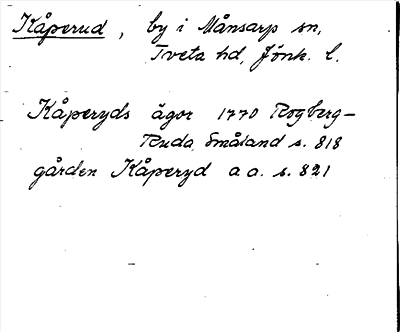 Kåperud, by i Månsarp sn,
Tveta hd, Jönk. l.
Kåperyds ägor 1770 Rogberg-
Ruda Småland s. 818
gården Kåperyd a a. s. 821